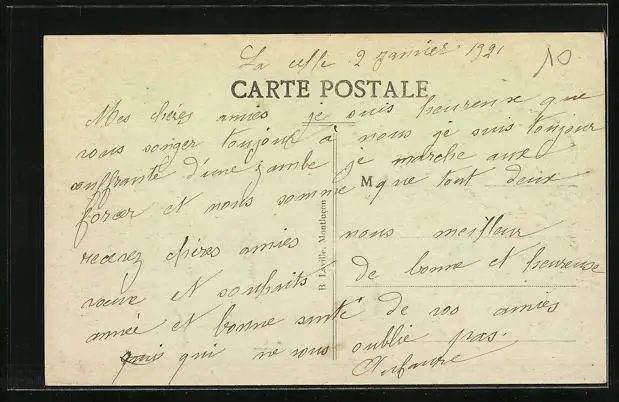 La celle 2 janvier 1921
10
CARTE POSTALE
Mes chéres amies je suis heureuse que
vous songer toujour a nous je suis toujour
souffrante d'une jambe je marche aux
forcer et nous somme que tout deux
M
recevez chéres amies nous meilleur
vœux et souhaits de bonne et heureuse
anneé et bonne santé de vos amies
qui ne vous oublie pas.
B Laville, Montluçon